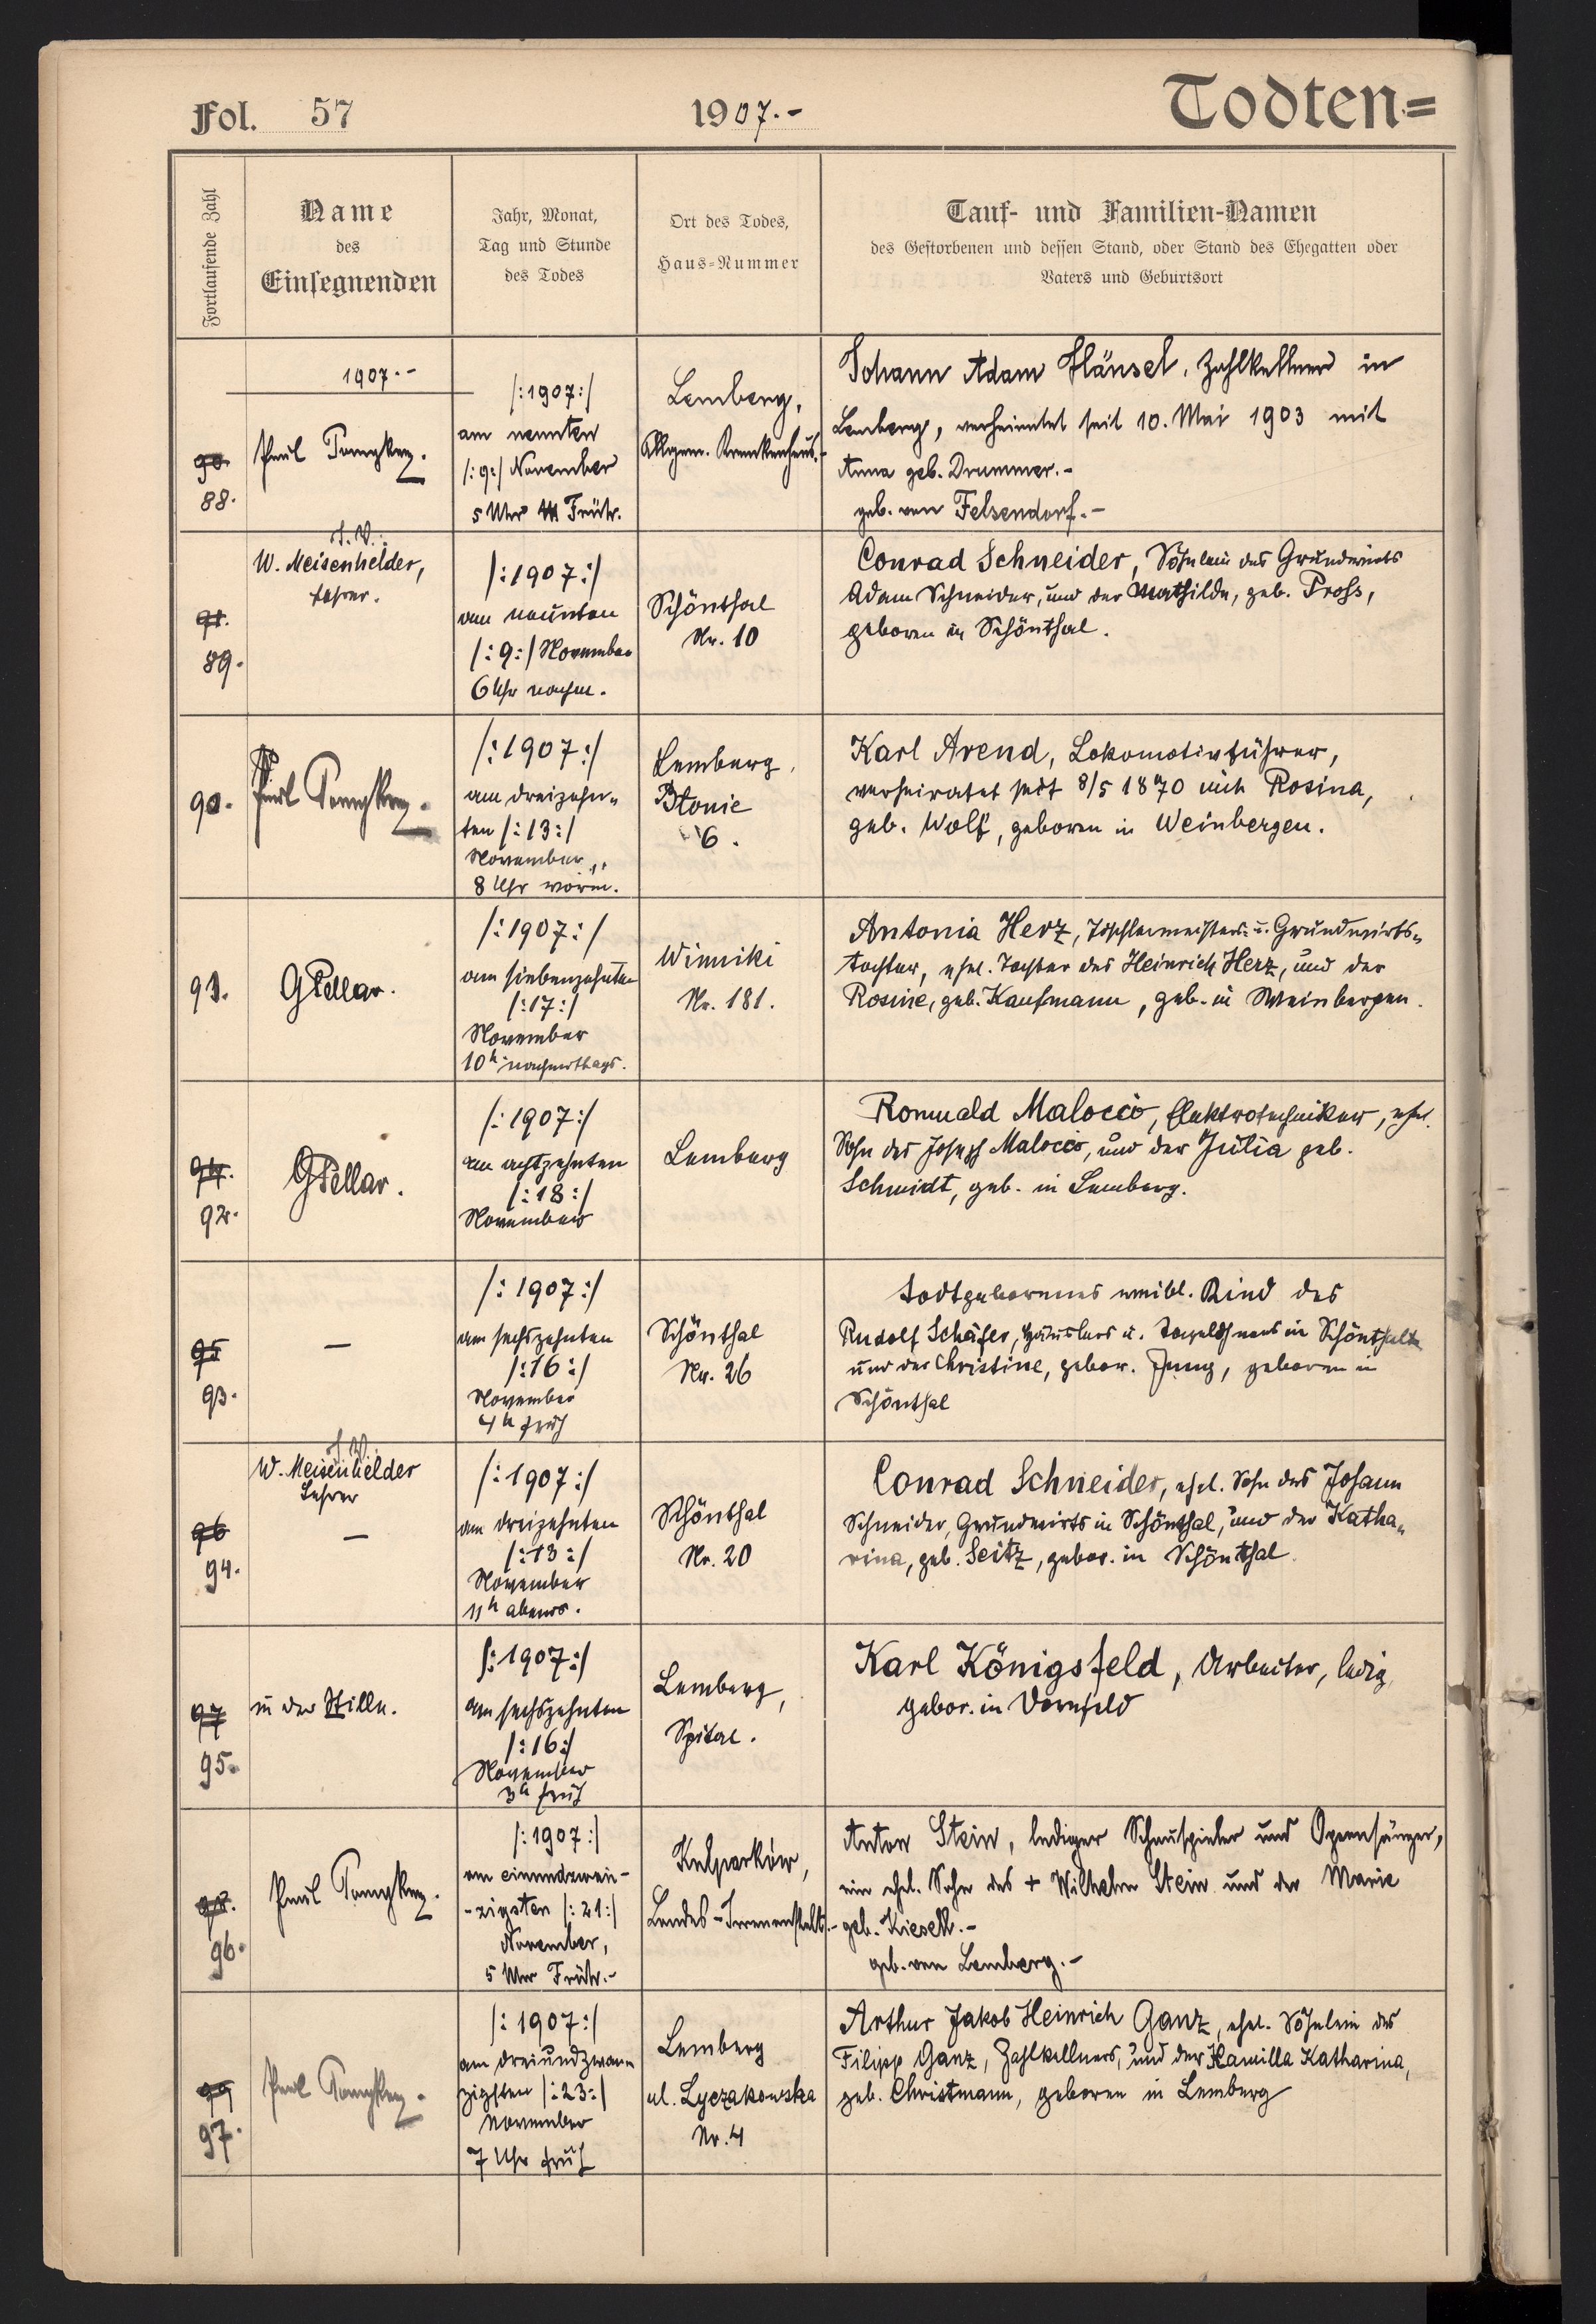 Fol. 57
1907.-
Todten=
Fortlaufende Zahl
Name
des
Einsegnenden
Jahr, Monat,
Tag und Stunde
des Todes
Ort des Todes,
Haus-Nummer
Tauf- und Familien-Namen
des Gestorbenen und dessen Stand, oder Stand des Ehegatten oder
Vaters und Geburtsort
1907.-
90.
88.
Paul
/:1907:/
am neunten
/:9:/ November
5 Uhr Früh.
Lemberg,
Allgem. Krankenhaus.-
Johann Adam Hänsel, Zahlkellner in
Lemberg, verheiratet seit 10. Mai 1903 mit
Anna geb. Drummer.-
geb. von Felsendorf.-
91.
89.
I. V.
W. Meisenhelder,
Lehrer.
/:1907:/
am neunten
/:9:/ November
6 Uhr nachm.
Schönthal
Nr. 10
Conrad Schneider, Söhnlein des Grundwirts
Adam Schneider, und der Mathilde, geb. Pross,
geboren in Schönthal.
90.
Paul
/:1907:/
am dreizehn-
ten /:13:/
November
8 Uhr vorm.
Lemberg,
Błonie
6.
Karl Arend, Lokomotivführer,
verheiratet seit 8/5 1870 mit Rosina,
geb. Wolf, geboren in Weinbergen.
91.
GKellar.
/:1907:/
am siebenzehnten
/:17:/
November
10h nachmittags.
Winniki
Nr. 181.
Antonia Herz, Tischlermeisters- u. Grundwirts-
tochter, ehel. Tochter des Heinrich Herz, und der
Rosine, geb. Kaufmann, geb. in Weinbergen.
94.
92.
GKellar.
/:1907:/
am achtzehnten
/:18:/
November
Lemberg
Romuald Malocco, Elektrotechniker, ehel.
Sohn des Joseph Malocco, und der Julia geb.
Schmidt, geb. in Lemberg.
95
93.
—
/:1907:/
am sechszehnten
/:16:/
November
4h früh
Schönthal
Nr. 26
Todtgeborenes weibl. Kind des
Rudolf Schäfer, Häuslers u. Tagelöhners in Schönthal
und der Christine, gebor. Jung, geboren in
Schönthal
96
94.
I. V.
W. Meisenhelder
Lehrer
—
/:1907:/
am dreizehnten
/:13:/
November
11h abends.
Schönthal
Nr. 20
Conrad Schneider, ehel. Sohn des Johann
Schneider, Grundwirts in Schönthal, und der Katha-
rina, geb. Seitz, gebor. in Schönthal
97
95.
in der Stille.
/:1907:/
am sechszehnten
/:16:/
November
3h früh
Lemberg,
Spital.
Karl Königsfeld, Arbeiter, ledig,
gebor. in Dornfeld
98.
96.
Paul
/:1907:/
am einundzwan-
-zigsten /:21:/
November,
5 Uhr Früh.-
Kulparków,
Landes-Irrenanstalt.-
Anton Stein, lediger Schauspieler und Opernsänger,
ein ehel. Sohn des + Wilhelm Stein und der Marie
geb. Kieselk.-
geb. von Lemberg.-
99
97.
Paul
/:1907:/
am dreiundzwan
zigsten /:23:/
November
7 Uhr früh
Lemberg
ul. Lyczakowska
Nr. 4
Arthur Jakob Heinrich Ganz, ehel. Söhnlein des
Filipp Ganz, Zahlkellners, und der Kamilla Katharina,
geb. Christmann, geboren in Lemberg